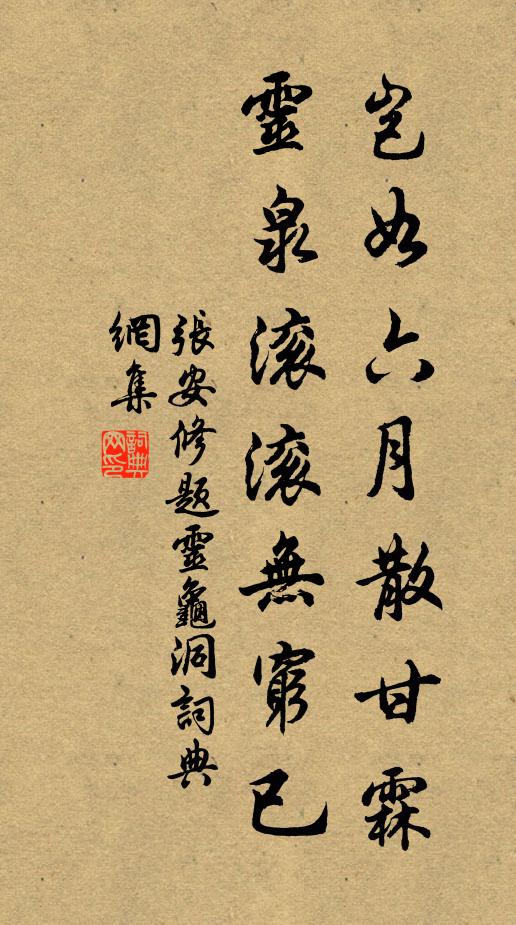 豈如六月散甘霖
靈泉滚滚無窮已
張安修题靈龜洞詞典
網集
詞典
网印